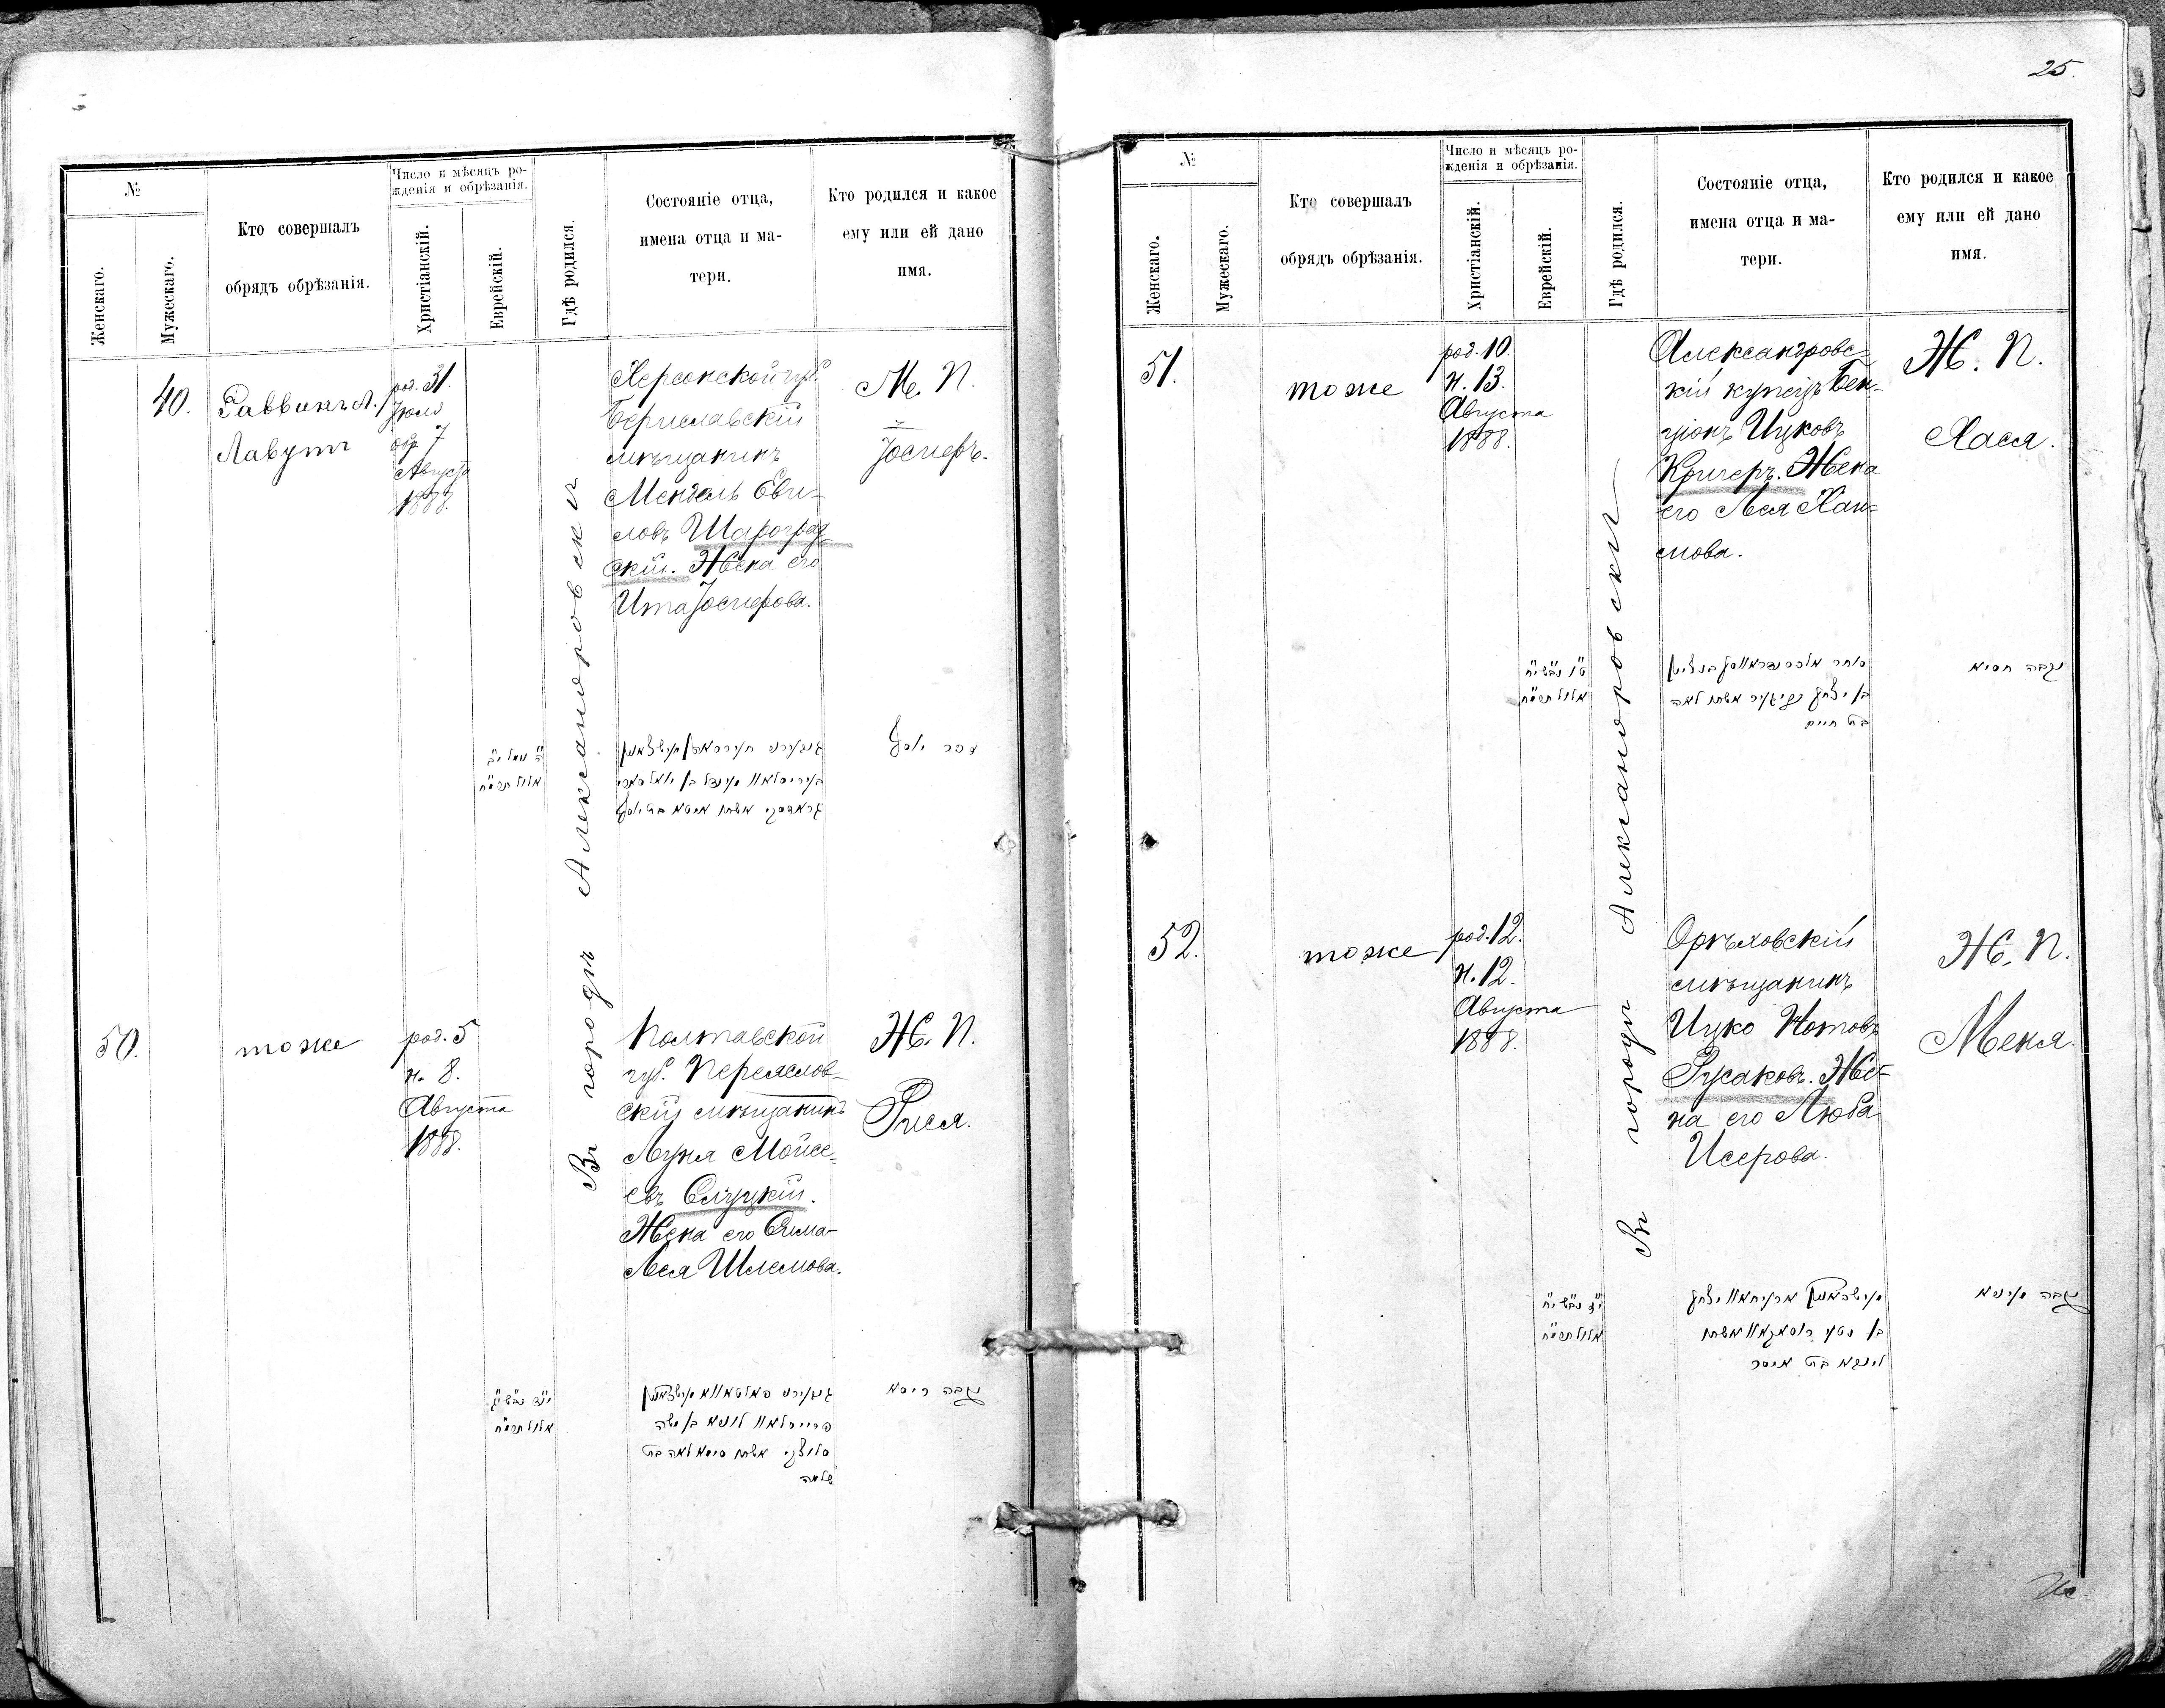 №
Женскаго.
Мужескаго.
Кто совершалъ
обрядъ обрѣзанія.
Число и мѣсяцъ ро-
жденія и обрѣзанія.
Христіанскій.
Еврейскій.
Гдѣ родился.
Состояніе отца,
имена отца и ма-
тери.
Кто родился и какое
ему или ей дано
имя.
40.
Раввинъ А.
Лавутъ
род. 31.
Іюля
обр. 7
Августа
1888.
Въ городѣ Александровскѣ
Херсонской губ.
Бериславскій
мѣщанинъ
Мендель Еви-
ловъ Шароград-
скій. Жена его
Ита Іосифова.
М. П.
Іосифъ.
זכר יוסף
50.
тоже
род. 5
н. 8.
Августа
1888.
Полтавской
губ. Переяслов-
скій мѣщанинъ
Луня Мойсе-
евъ Слуцкій.
Жена его Сима-
Лея Шлемова.
Ж. П.
Рися.
נקבה ריסא
סלוצקי אשתו סימא לאה בת
שלמה
25.
№
Женскаго.
Мужескаго.
Кто совершалъ
обрядъ обрѣзанія.
Число и мѣсяцъ ро-
жденія и обрѣзанія.
Христіанскій.
Еврейскій.
Гдѣ родился.
Состояніе отца,
имена отца и ма-
тери.
Кто родился и какое
ему или ей дано
имя.
51.
тоже
род. 10.
н. 13.
Августа
1888.
Въ городѣ Александровскѣ
Александровс-
кій купецъ Бен-
ціонъ Ицковъ
Кричеръ. Жена
его Лея Хаи-
мова.
Ж. П.
Хася.
נקבה חסיא
בת חיים
52.
тоже
род. 12.
н. 12.
Августа
1888.
Орѣховскій
мѣщанинъ
Ицко Нотовъ
Русаковъ. Же-
на его Люба
Исерова.
Ж. П.
Меня.
נקבה מיניא